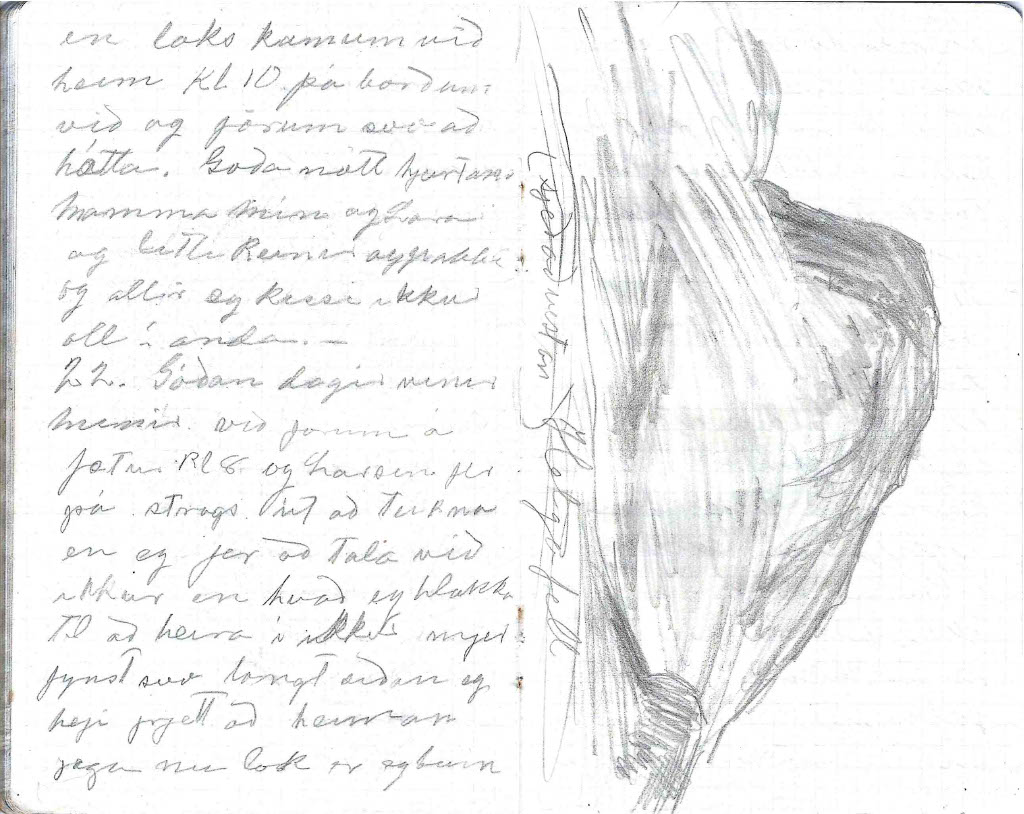 en loks kamum við
heim Kl 10 þá borðum
við og förum svo að
hátta. Goða nótt hjartans
mamma mín og Lára
og litli Reinir og pabbi
og allir eg kissi ikkur
öll í anda. -
22. Góðan dagin vinir
minir við förum á
fætur Kl 8 og Larsen fer
þá strags út að teikna
en eg fer að tala við
ikkur en hvað eg hlakka
til að heira i ikkur mjer
fynst svo langt siðan eg
hefi frjett að heiman
jæga nu lok er eg buin
(sjeð austan Hlöðufell